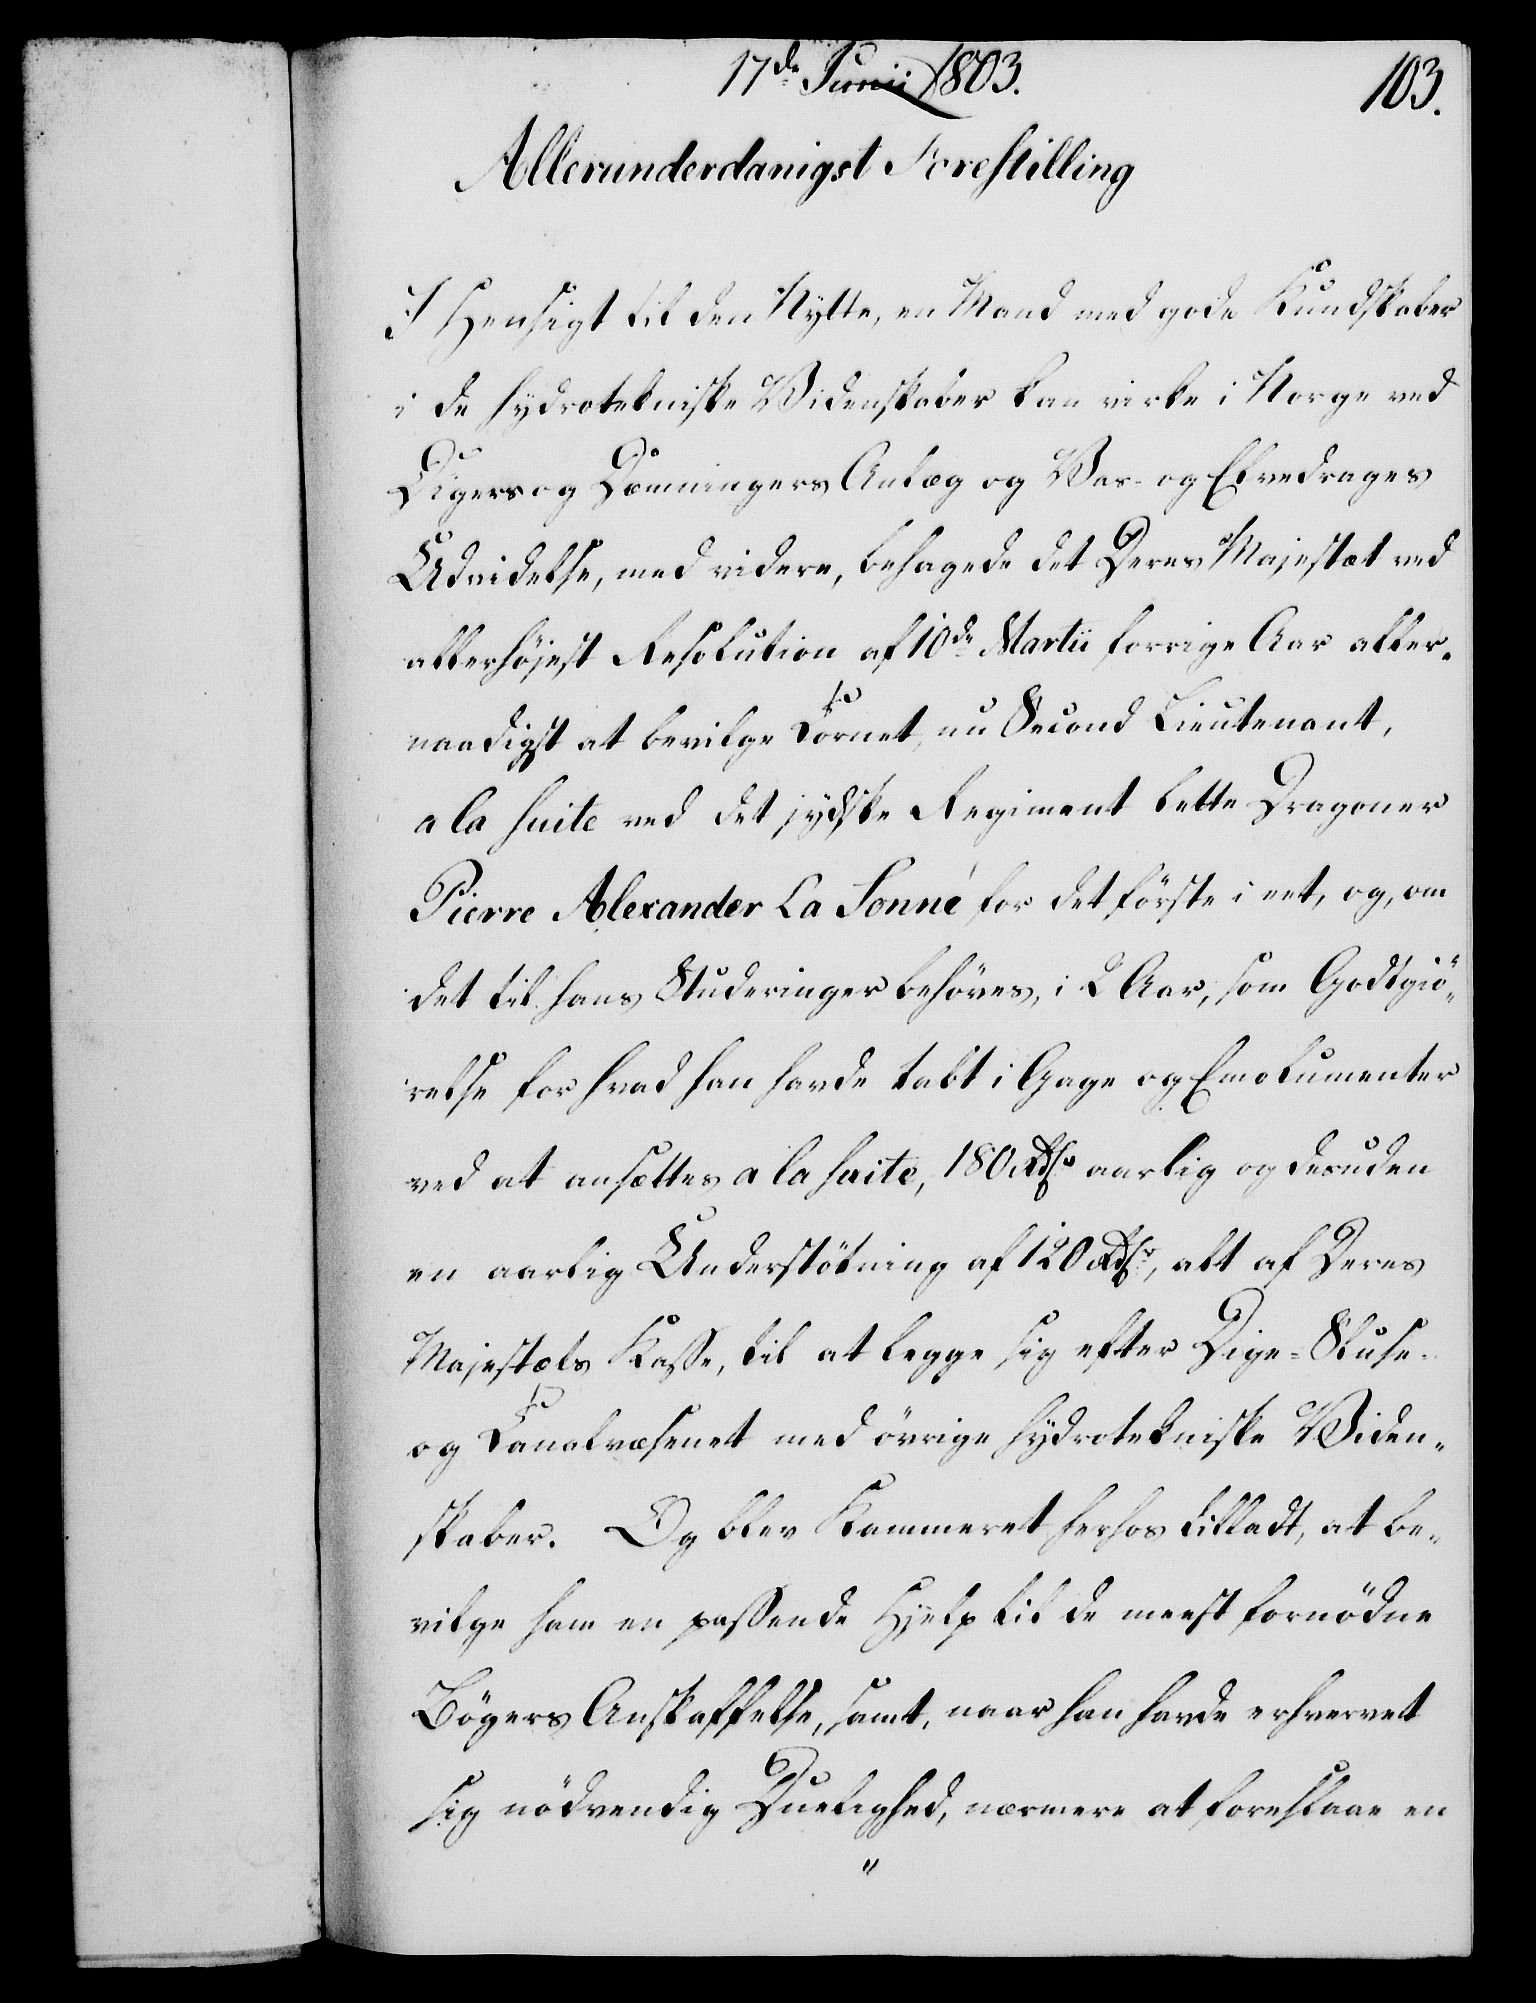 17de Junii 1803.
103.
Allerunderdanigst Forestilling
I Hensigt til den Nytte, en Mand med gode Kundskaber
i de hydrotekniske Videnskaber kan virke i Norge ved
Digers og Dæmningers Anlæg og Vas- og Elvedrages
Udvidelse, med videre, behagede det Deres Majestæt ved
allerhöjest Resolution af 10de Martii forrige Aar aller-
naadigst at bevilge Cornet, nu Second Lieutenant,
a la suite ved det jydske Regiment lette Dragoner
Pierre Alexander La Sonné for det förste i eet, og, om
det til hans Studeringer behöves, i 2 Aar, som Godtgiö-
relse for hvad han havde tabt i Gage og Emolumenter
ved at ansættes a la suite, 180 Rdr aarlig og desuden
en aarlig Understötning af 120 Rdr, alt af Deres
Majestæts Kasse, til at legge sig efter Dige- Sluse-
og Canalvæsenet med övrige hydrotekniske Viden-
skaber. Og blev Kammeret herhos tilladt, at be-
vilge ham en passende Hjelp til de meest fornödne
Bögers Anskaffelse, samt, naar han havde erhvervet
sig nödvendig Duelighed, nærmere at foreslaae en
"